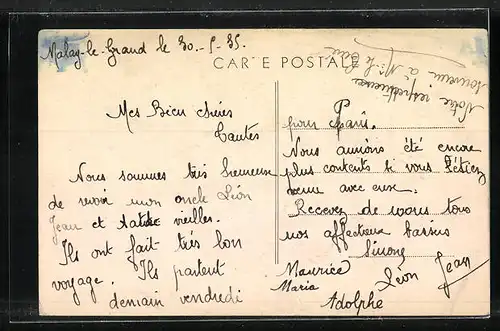 Malay-le-Grand le 30-5-35.
CARTE POSTALE
Mes Bien chères
Tantes
Nous sommes très heureux
de revoir mon oncle Léon
Jean et vieilles.
Ils ont fait très bon
voyage. Ils partent
demain vendredi
pour Paris.
Nous aurions été encore
plus contents si vous l'étiez
venue avec eux.
Recevez de nous tous
nos affectueux baisers
Simone
Maurice
Léon Jean
Maria
Adolphe
Notre respectueux
souvenir à